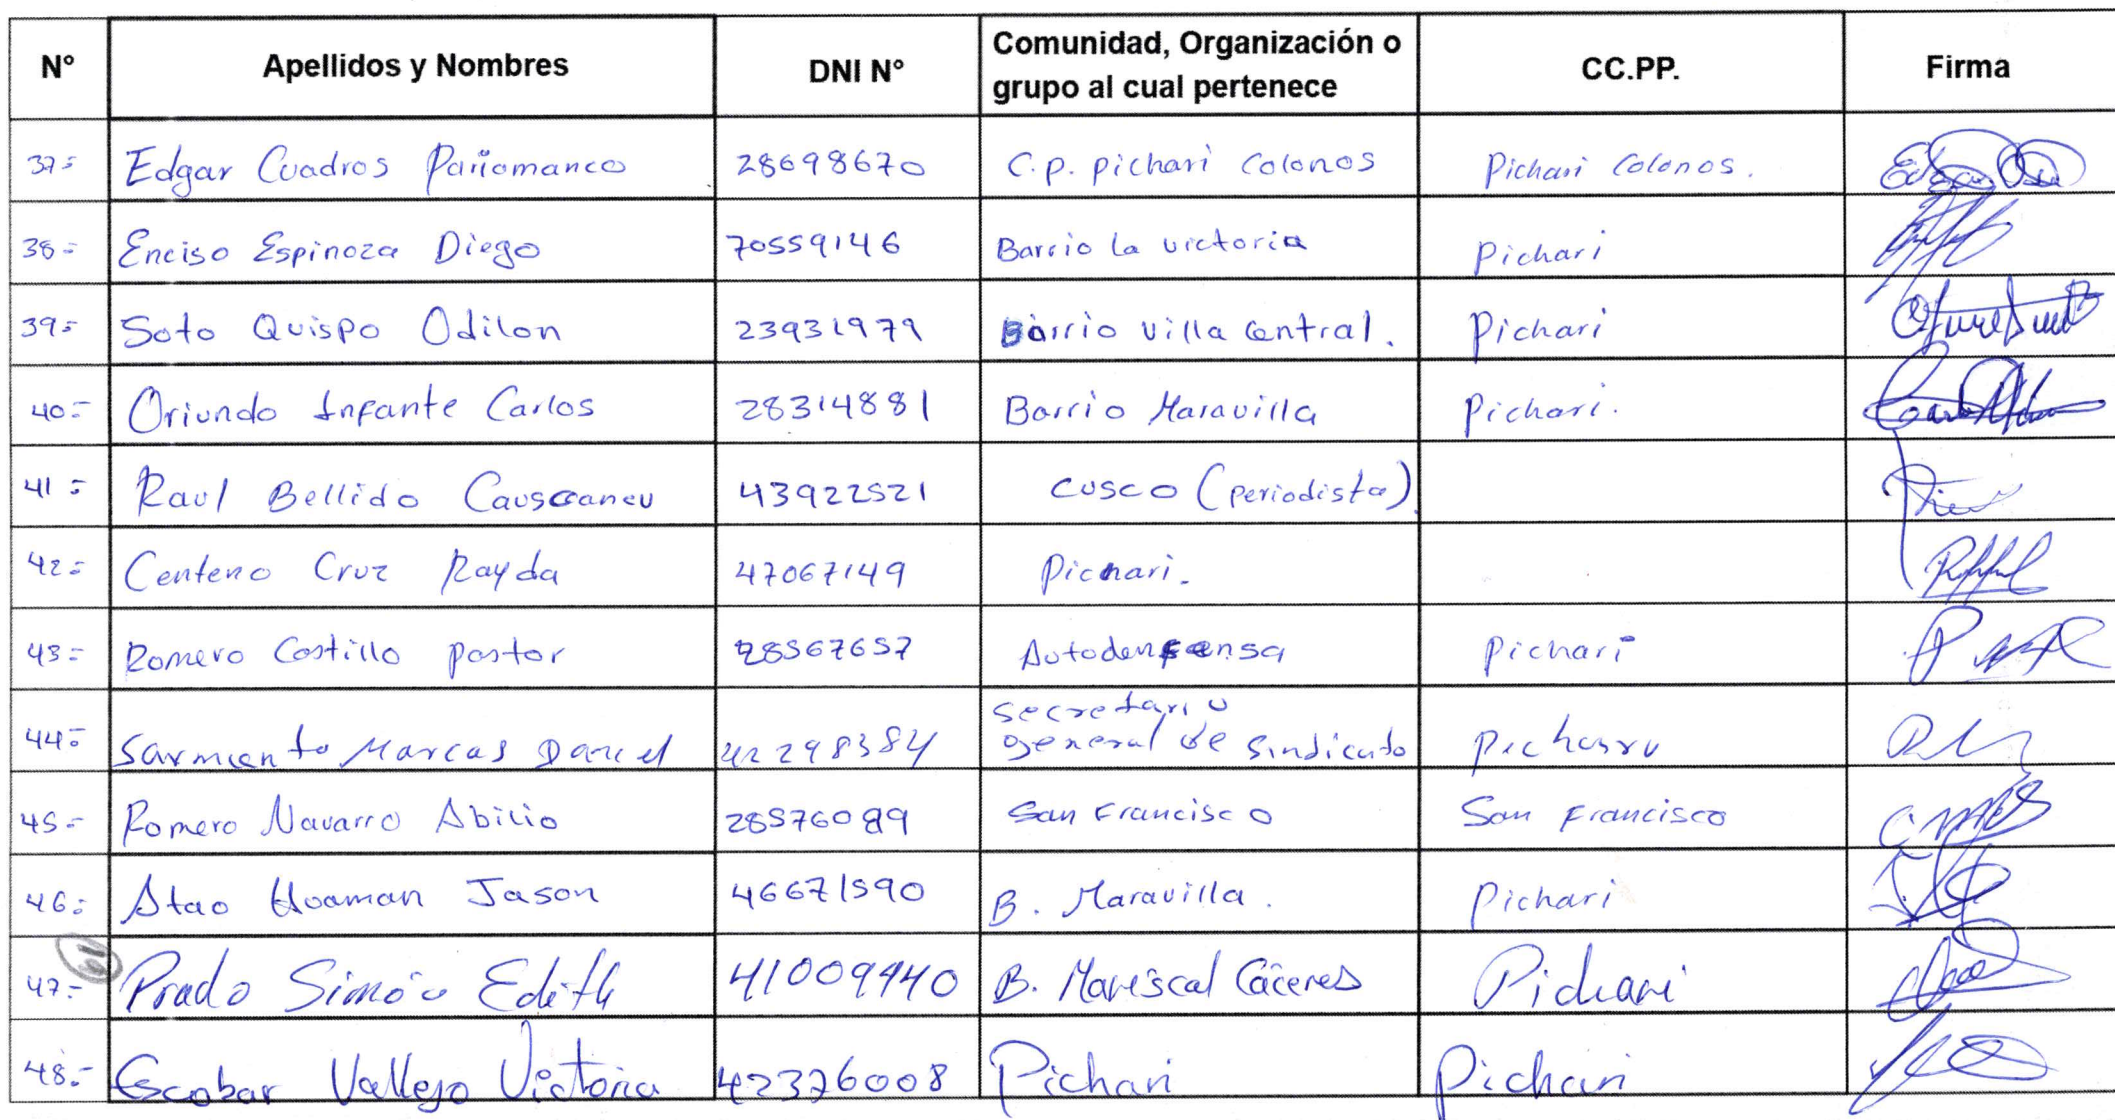 N° Apellidos y Nombres DNI N° Comunidad, Organización o grupo al cual pertenece CC.PP. Firma
37= Edgar Cuadros Pariomanco 28698670 C.p. pichari Colonos Pichari Colonos.
38= Enciso Espinoza Diego 70559146 Barrio La victoria Pichari
39= Soto Quispo Odilon 23931979 Barrio villa Central. Pichari
40= Oriundo Infante Carlos 28314881 Barrio Maravilla Pichari.
41= Raul Bellido 43922521 CUSCO (periodista)
42= Centeno Cruz Rayda 47067149 Pichari.
43= Romero Castillo pastor 28567657 Autodenfensa Pichari
44= Sarmiento Marcas Daniel 42298384 secretario general de Sindicato
45= Romero Navarro Abilio 28576089 San Francisco San Francisco
46= Atao Huaman Jason 46671590 B. Maravilla. Pichari
47= Prado Edith 41009940 B. Mariscal Cáceres Pichari
48.- Escobar Vallejo Victoria 42376008 Pichari Pichari